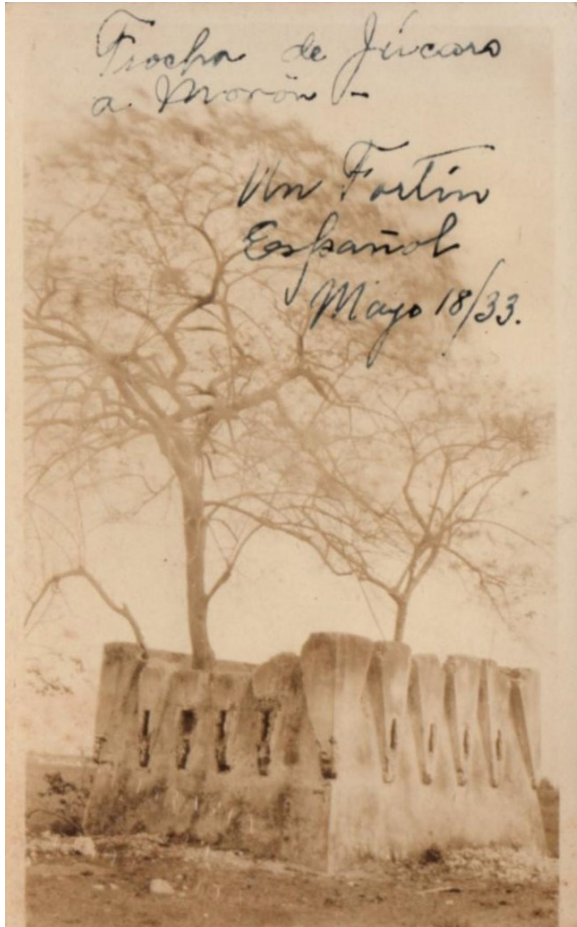 Trocha de Júcaro
a Morón -
Un Fortín
Español
Mayo 18/33.